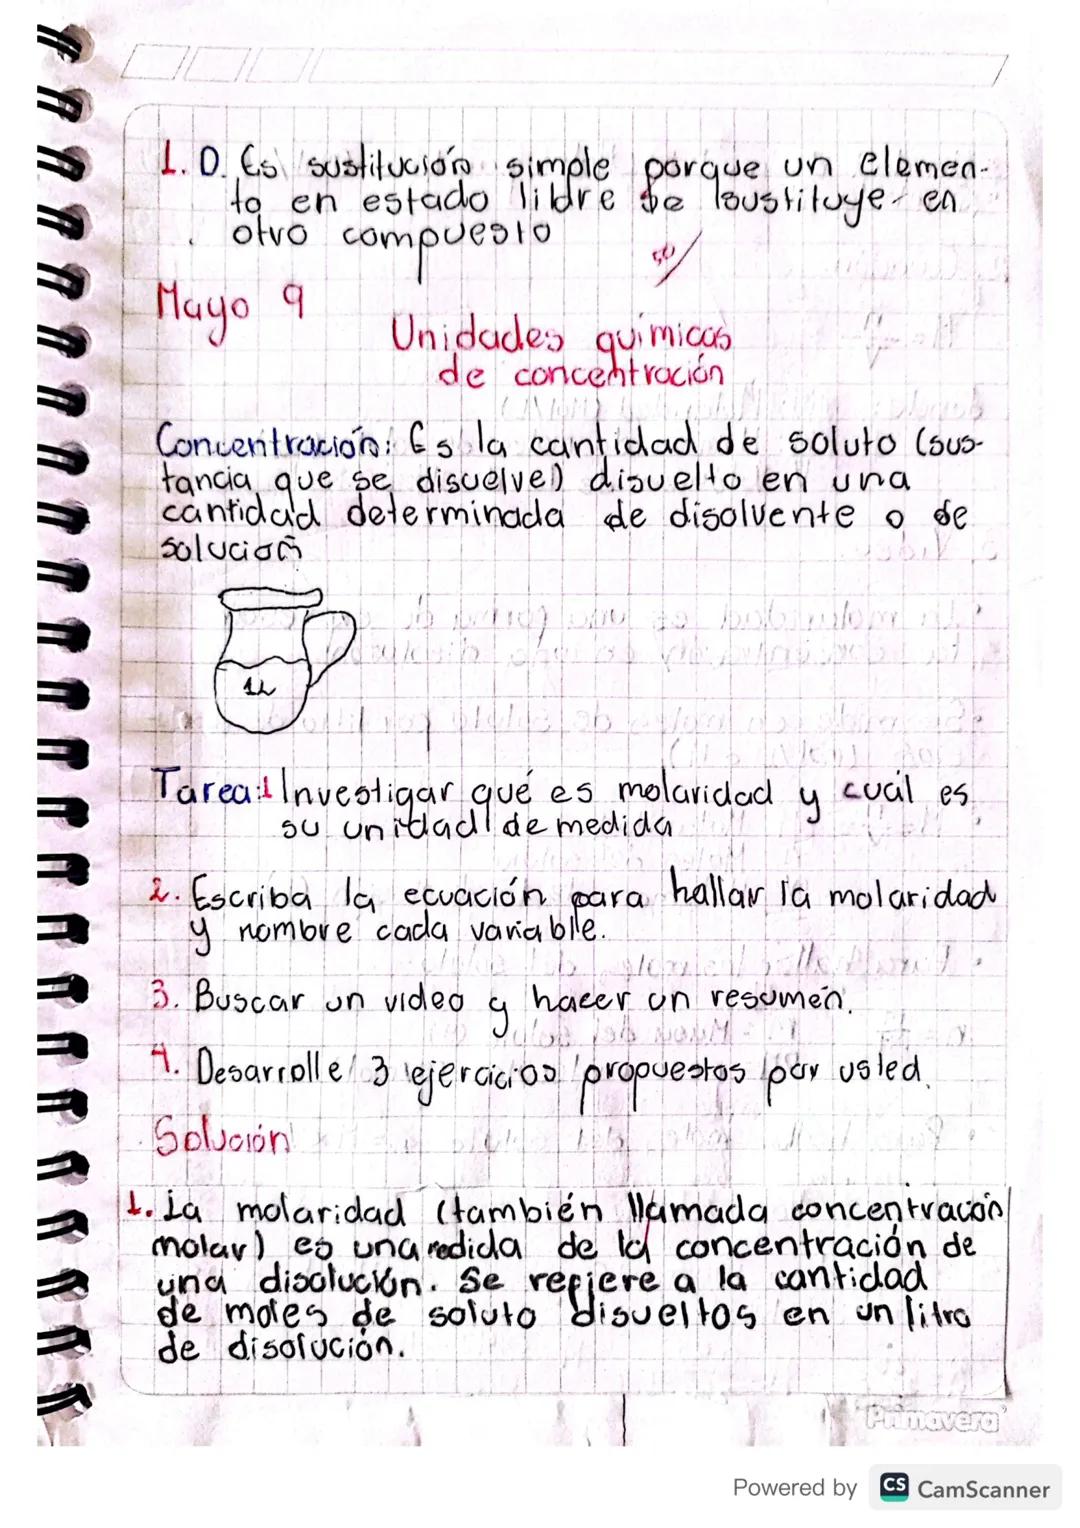 1. D. Es sustitución simple porque un elemen-
to en estado libre se sustituye en
otro compuesto
50
Mayo 9
Unidades químicas
de concentración
Concentración: Es la cantidad de soluto (sus-
tancia que se disuelve) disuelto en una
cantidad determinada de disolvente o de
solución
1L
Tarea: 1 Investigar qué es molaridad y cuál es
su unidad de medida
2. Escriba la ecuación para hallar la molaridad
y nombre cada variable.
3. Buscar un video y hacer un resumen.
4. Desarrolle 3 ejercicios propuestos por usted.
Solución
1. La molaridad (también llamada concentración
molar) es una medida de la concentración de
una disolución. Se refiere a la cantidad
de moles de soluto disueltos en un litro
de disolución.
Primavera
Powered by CS CamScanner